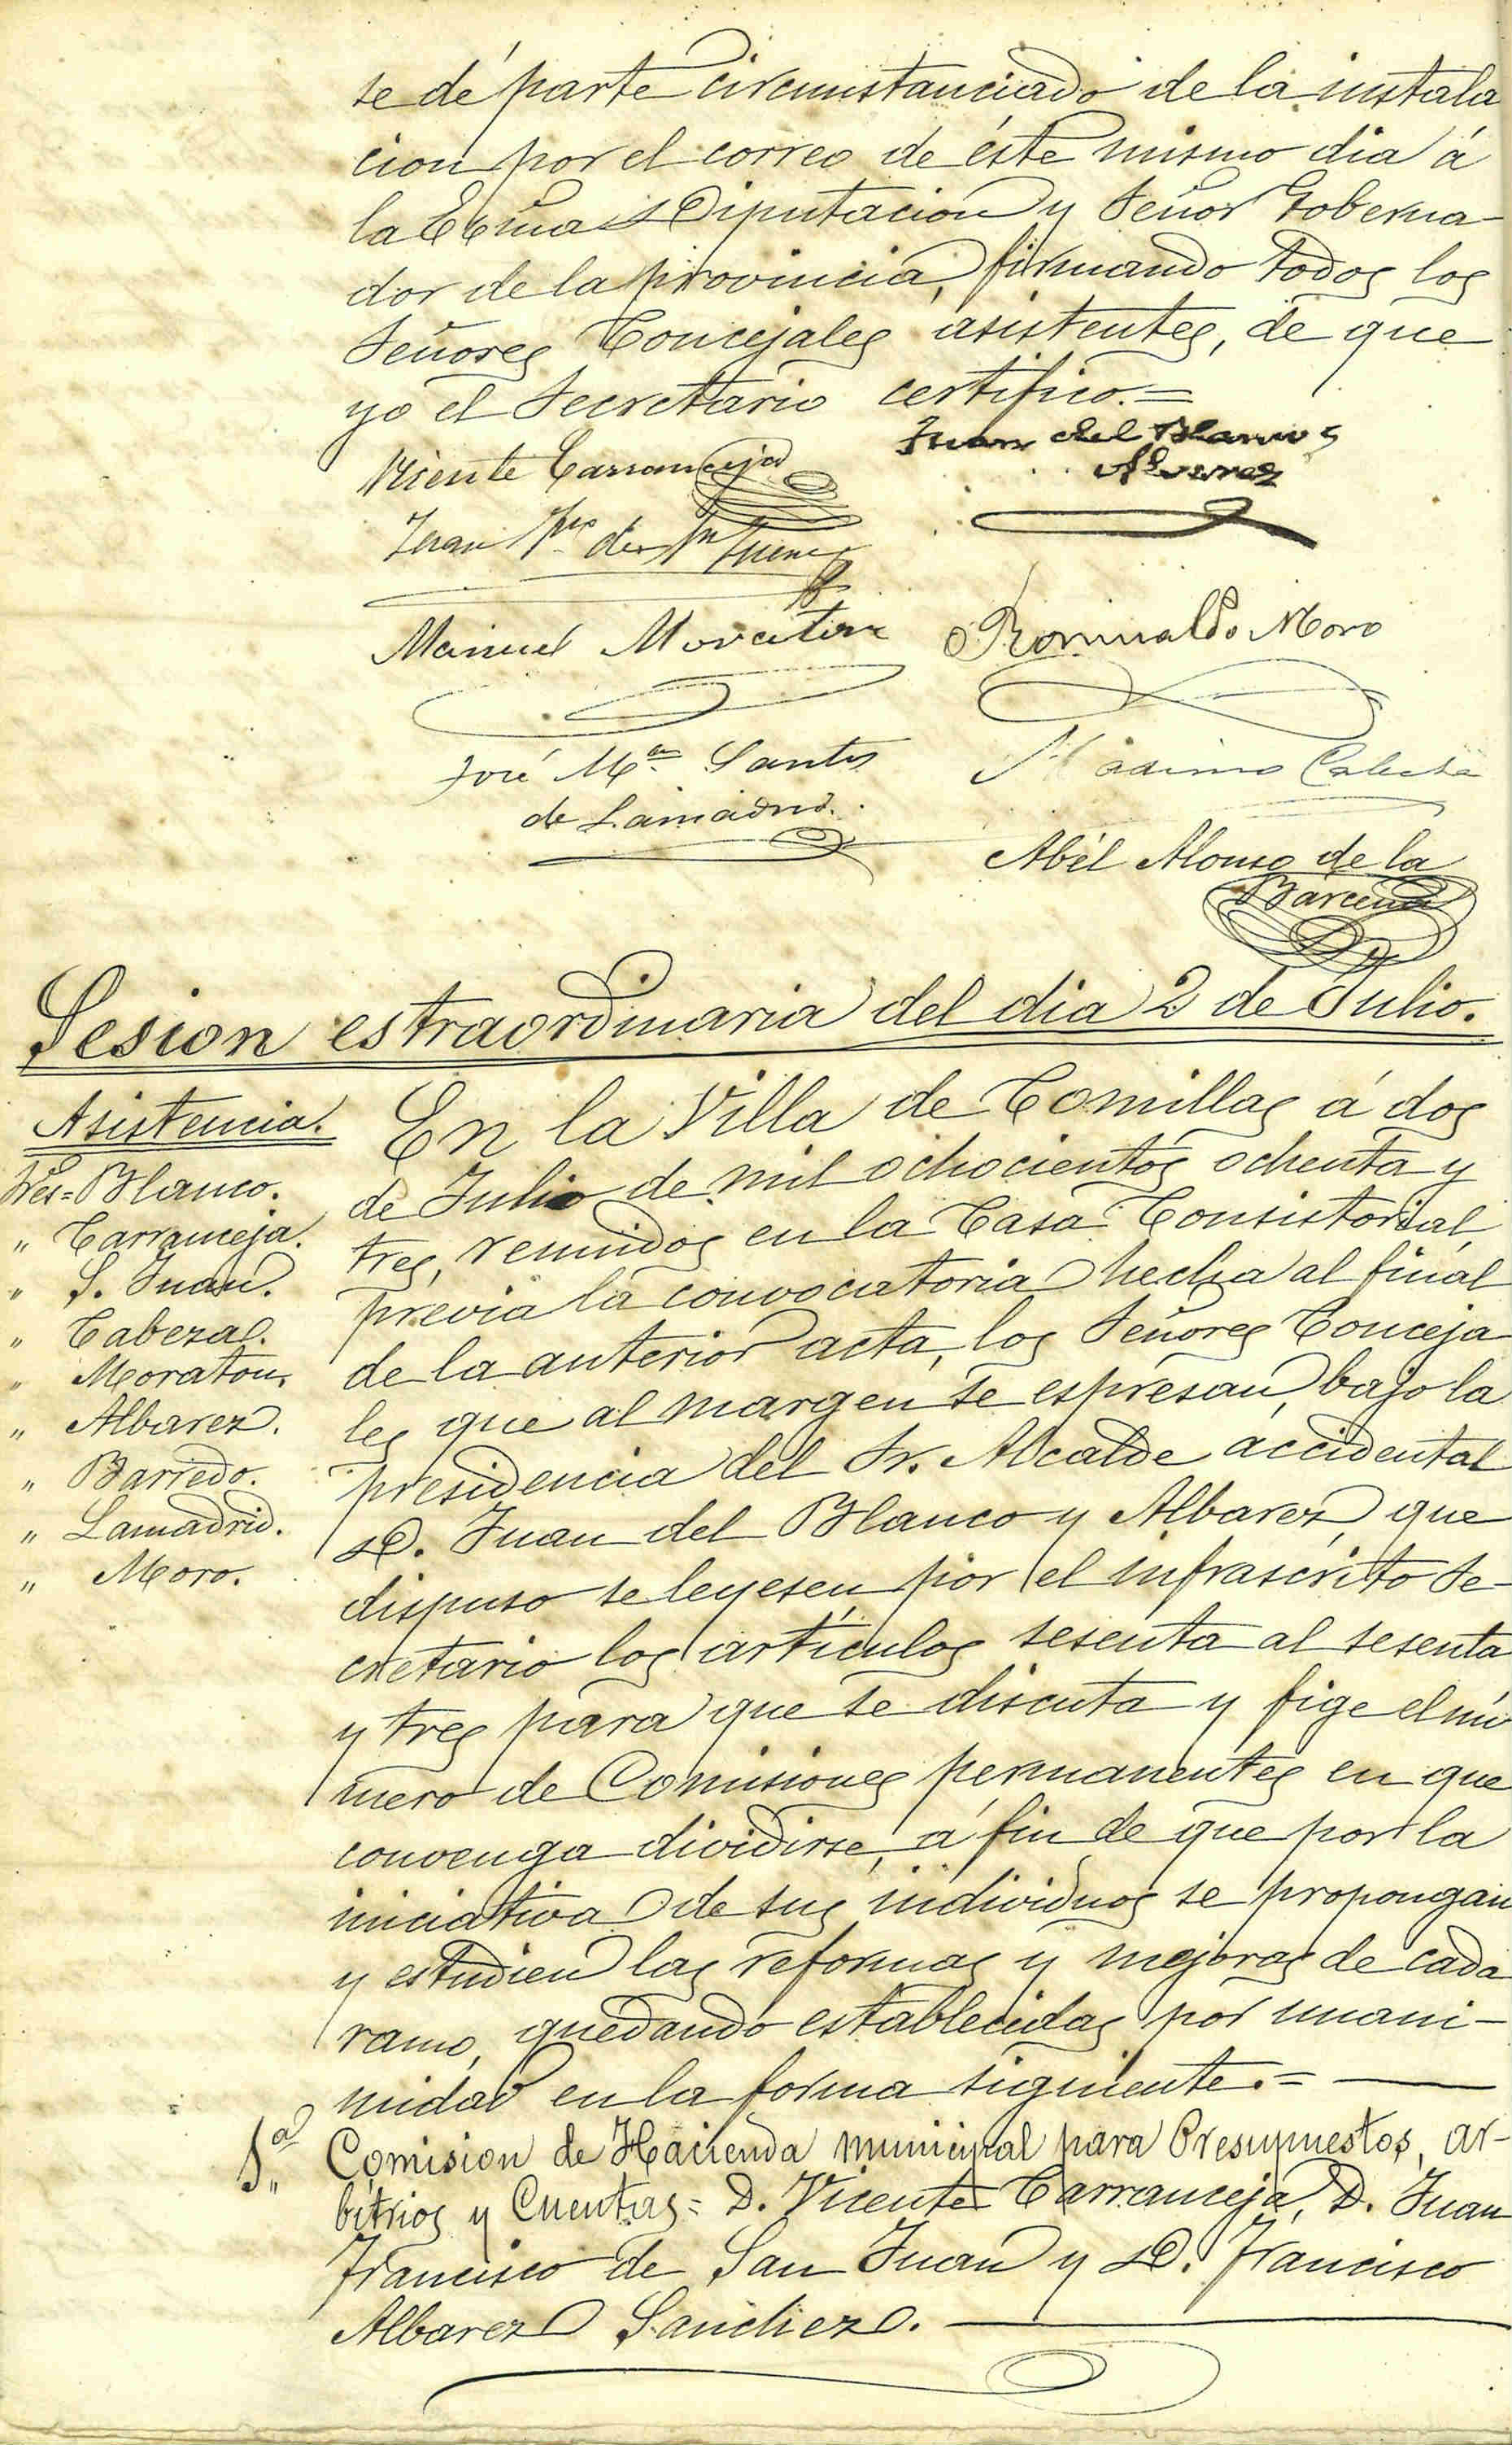 se dé parte circunstanciado de la instala
cion por el correo de éste mismo dia á
la Ecsma Diputacion y Señor Goberna-
dor de la provincia, firmando todos los
Señores Concejales asistentes, de que
yo el Secretario certifico.=
Vicente Carranceja
Juan del Blanco
Alvarez
Juan Fco de Sn Juan
Manuel Moraton
Romualdo Moro
José Ma Santos
de Lamadrid.
Maximo Cabeza
Abél Alonso de la
Barcena
Sesion estraordinaria del dia 2 de Julio.
Asistencia.
Sres= Blanco.
" Carranceja.
" S. Juan.
" Cabeza.
" Moraton.
" Albarez.
" Barredo.
" Lamadrid.
" Moro.
En la Villa de Comillas á dos
de Julio de mil ochocientos ochenta y
tres, reunidos en la Casa Consistorial,
previa la convocatoria hecha al final
de la anterior acta, los Señores Conceja
les que al margen se espresan, bajo la
presidencia del Sr. Alcalde accidental
D. Juan del Blanco y Albarez, que
dispuso se leyesen por el infrascrito Se-
cretario los artículos sesenta al sesenta
y tres para que se discuta y fige el nú
mero de Comisiones permanentes en que
convenga dividirse, á fin de que por la
iniciativa de sus individuos se propongan
y estudien las reformas y mejoras de cada
ramo, quedando establecidas por unani-
midad en la forma siguiente.=
1.a Comision de Hacienda municipal para Presupuestos, ar-
bitrios y Cuentas= D. Vicente Carranceja, D. Juan
Francisco de San Juan y D. Francisco
Albarez Sanchez.